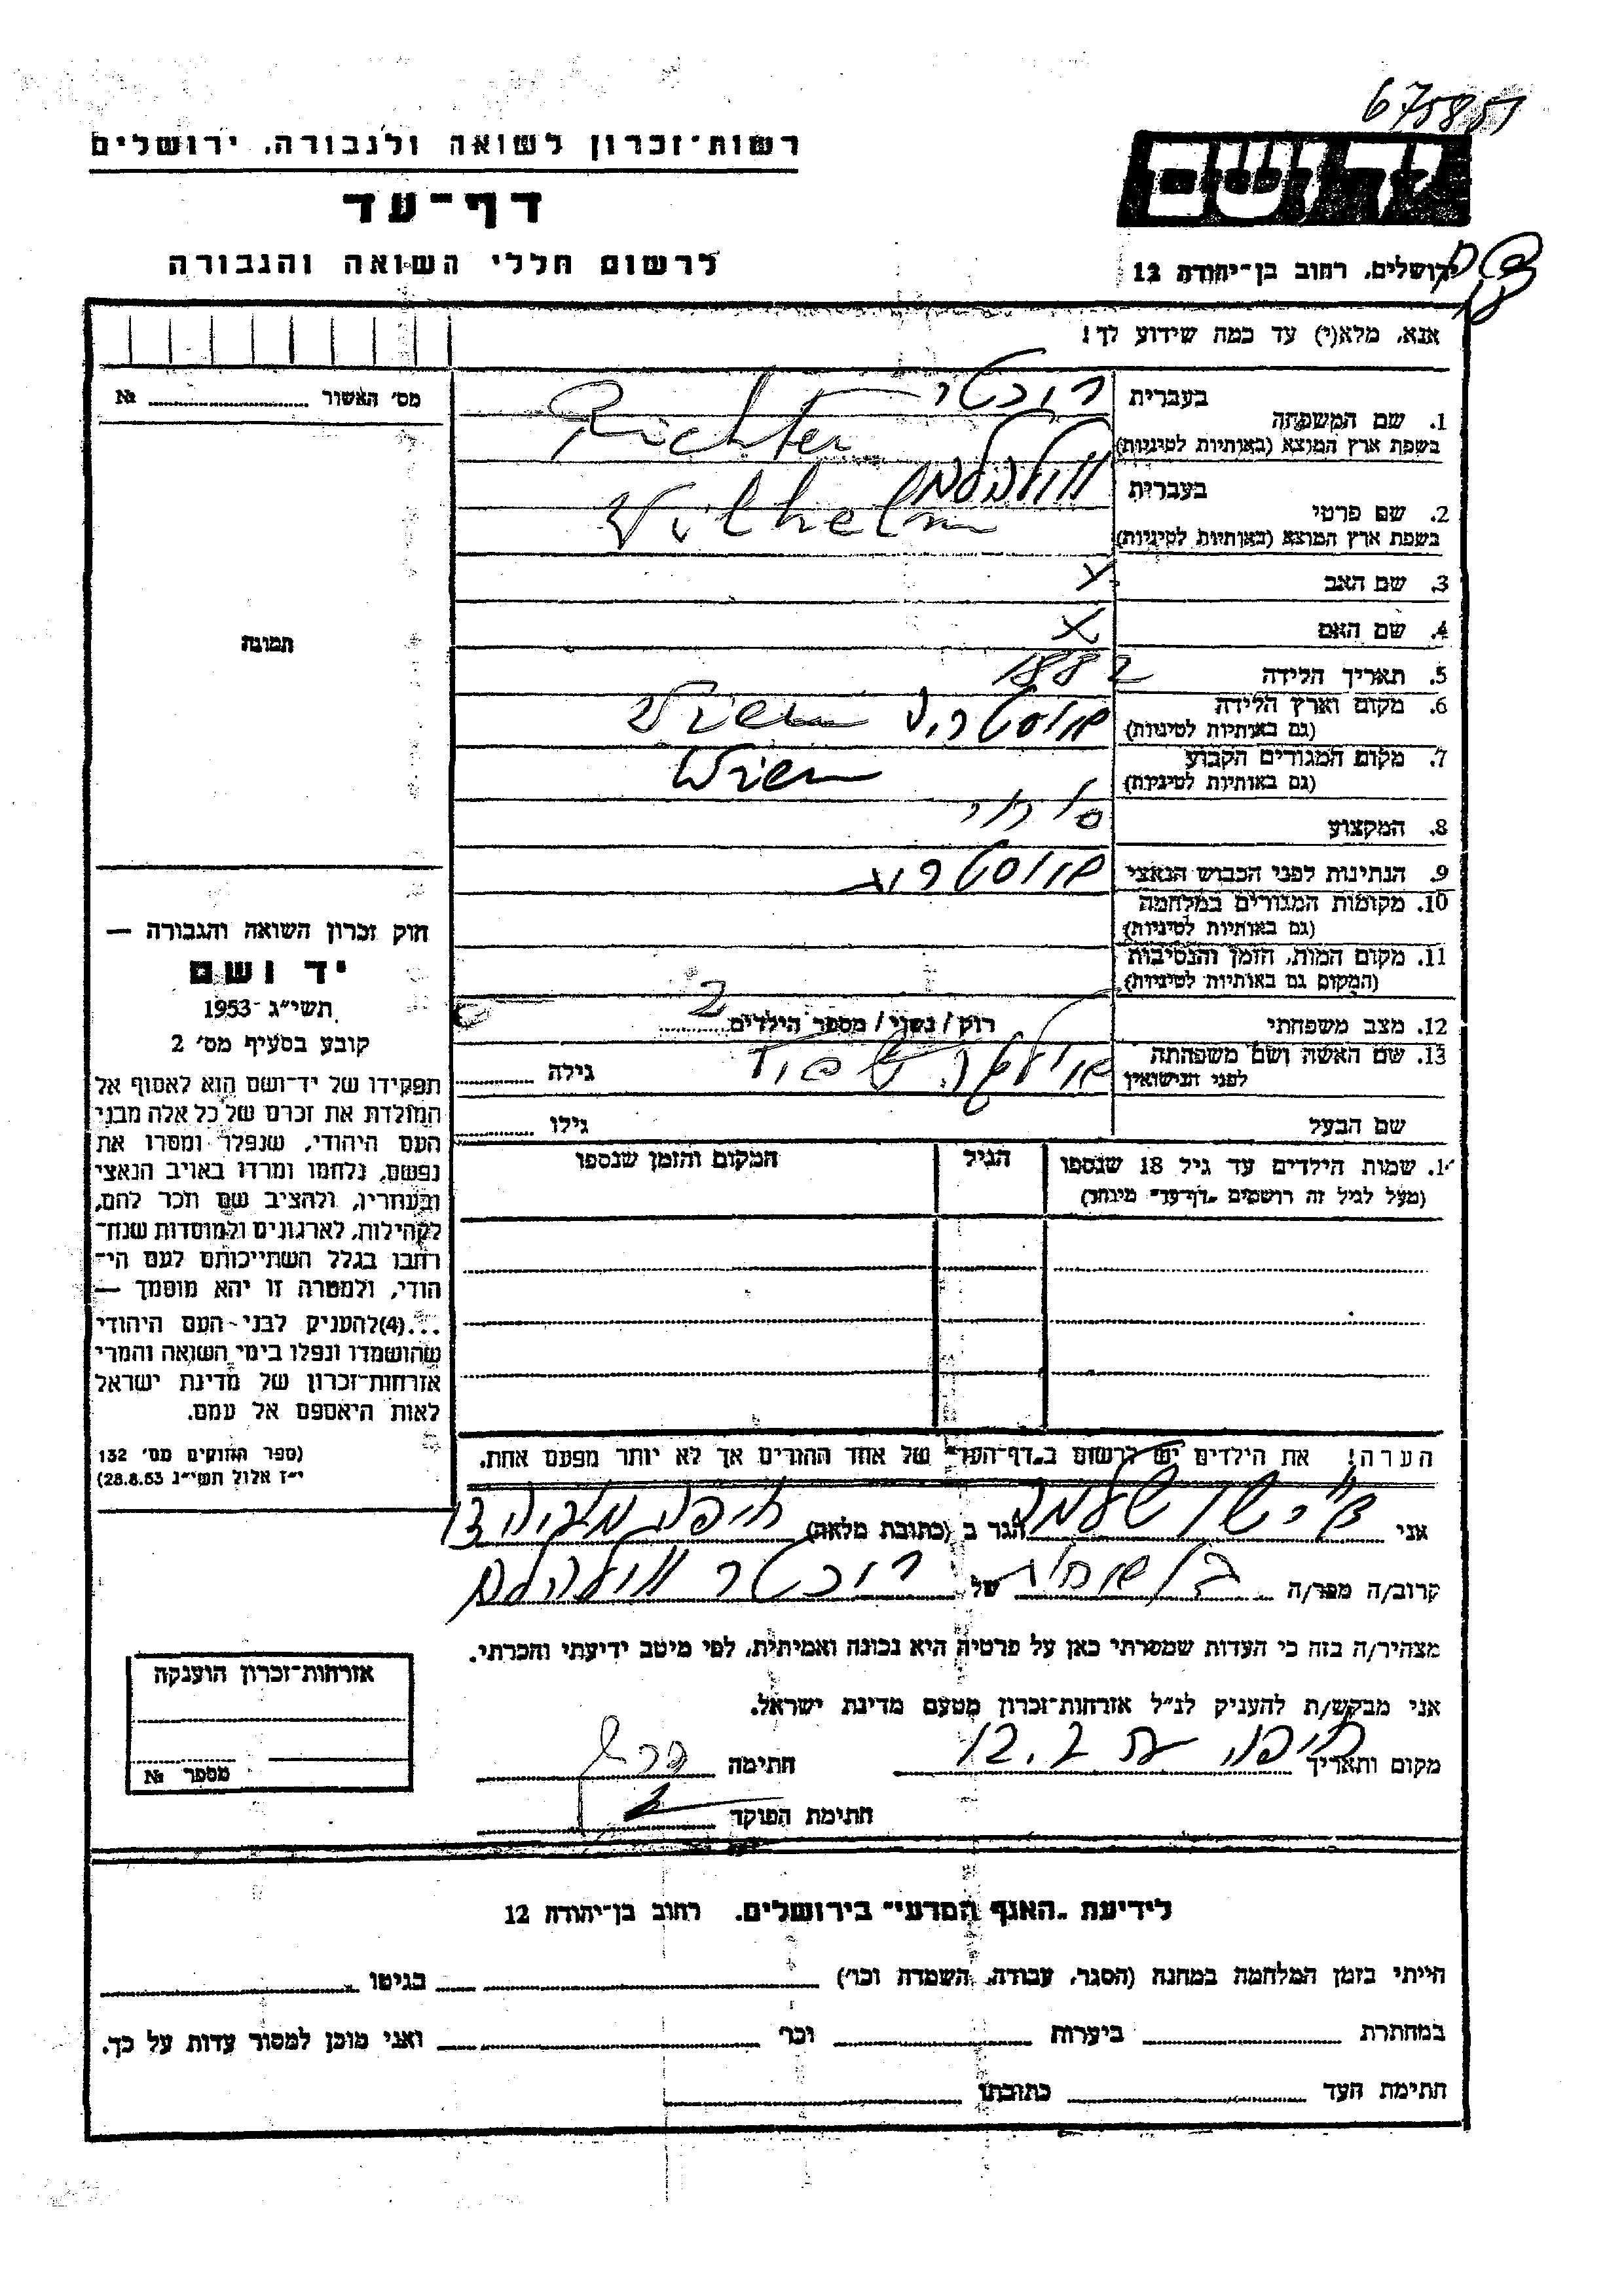 675851
רשות־זכרון לשואה ולגבורה, ירושלים
דף־עד
לרשום חללי השואה והגבורה
יד ושם
ירושלים, רחוב בן־יהודה 12
אנא, מלא(י) עד כמה שידוע לך!
מס׳ האשור № 
1. שם המשפחה
בעברית
בשפת ארץ המוצא (באותיות לטיניות)
Richter
2. שם פרטי
בעברית
בשפת ארץ המוצא (באותיות לטיניות)
Wilhelm
3. שם האב
4. שם האם
5. תאריך הלידה 1882
6. מקום וארץ הלידה
(גם באותיות לטיניות)
Wien
7. מקום המגורים הקבוע
(גם באותיות לטיניות)
Wien
8. המקצוע
9. הנתינות לפני הכבוש הנאצי
10. מקומות המגורים במלחמה
(גם באותיות לטיניות)
11. מקום המות, הזמן והנסיבות
(המקום גם באותיות לטיניות)
12. מצב משפחתי רוק / נשוי / מספר הילדים 2
13. שם האשה ושם משפחתה
לפני הנישואין
גילה
שם הבעל
גילו
שמות הילדים עד גיל 18 שנספו
(מעל לגיל זה רושמים „דף־עד” מיוחד)
הגיל
המקום והזמן שנספו
הערה! את הילדים יש לרשום ב„דף־העד” של אחד ההורים אך לא יותר מפעם אחת.
תמונה
חוק זכרון השואה והגבורה —
יד ושם
תשי״ג -1953
קובע בסעיף מס׳ 2
תפקידו של יד־ושם הוא לאסוף אל
המולדת את זכרם של כל אלה מבני
העם היהודי, שנפלו ומסרו את
נפשם, נלחמו ומרדו באויב הנאצי
ובעוזריו, ולהציב שם וזכר להם,
לקהילות, לארגונים ולמוסדות שנח־
רבו בגלל השתייכותם לעם הי־
הודי, ולמטרה זו יהא מוסמך —
...(4)להעניק לבני־העם היהודי
שהושמדו ונפלו בימי השואה והמרי
אזרחות־זכרון של מדינת ישראל
לאות היאספם אל עמם.
(ספר החוקים מס׳ 132
י״ז אלול תשי״ג 28.8.53)
אני הגר ב (כתובת מלאה) חיפה
קרוב/ה מכר/ה של ריכטר ווילהלם
מצהיר/ה בזה כי העדות שמסרתי כאן על פרטיה היא נכונה ואמיתית, לפי מיטב ידיעתי והכרתי.
אני מבקש/ת להעניק לנ״ל אזרחות־זכרון מטעם מדינת ישראל.
מקום ותאריך חיפה חתימה
חתימת הפוקד
אזרחות־זכרון הוענקה
מספר №
לידיעת „האגף המדעי” בירושלים, רחוב בן־יהודה 12
הייתי בזמן המלחמה במחנה (הסגר, עבודה, השמדה וכו׳) בגיטו
במחתרת ביערות וכו׳ ואני מוכן למסור עדות על כך.
חתימת העד כתובתו